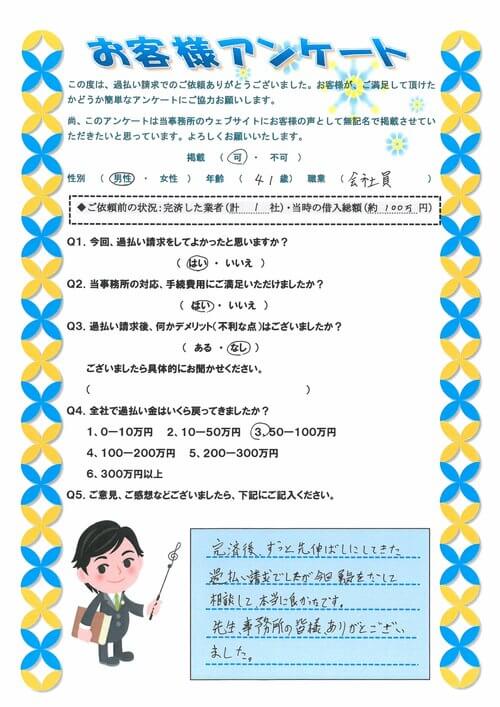 お客様アンケート
この度は、過払い請求でのご依頼ありがとうございました。お客様が、ご満足して頂けた
かどうか簡単なアンケートにご協力お願いします。
尚、このアンケートは当事務所のウェブサイトにお客様の声として無記名で掲載させてい
ただきたいと思っています。よろしくお願いいたします。
掲載 ( 可 ・ 不可 )
性別 ( 男性 ・ 女性 ) 年齢 ( 41 歳) 職業 ( 会社員 )
◆ご依頼前の状況:完済した業者(計 1 社)・当時の借入総額(約 100万 円)
Q1. 今回、過払い請求をしてよかったと思いますか?
( はい ・ いいえ )
Q2. 当事務所の対応、手続費用にご満足いただけましたか?
( はい ・ いいえ )
Q3. 過払い請求後、何かデメリット(不利な点)はございましたか?
( ある ・ なし )
ございましたら具体的にお聞かせください。
( )
Q4. 全社で過払い金はいくら戻ってきましたか?
1、0-10万円 2、10-50万円 3、50-100万円
4、100-200万円 5、200-300万円
6、300万円以上
Q5. ご意見、ご感想などございましたら、下記にご記入ください。
完済後、ずっと先伸ばしにしてきた
過払い請求でしたが今回勇気をだして
相談して本当に良かったです。
先生、事務所の皆様ありがとござい
ました。